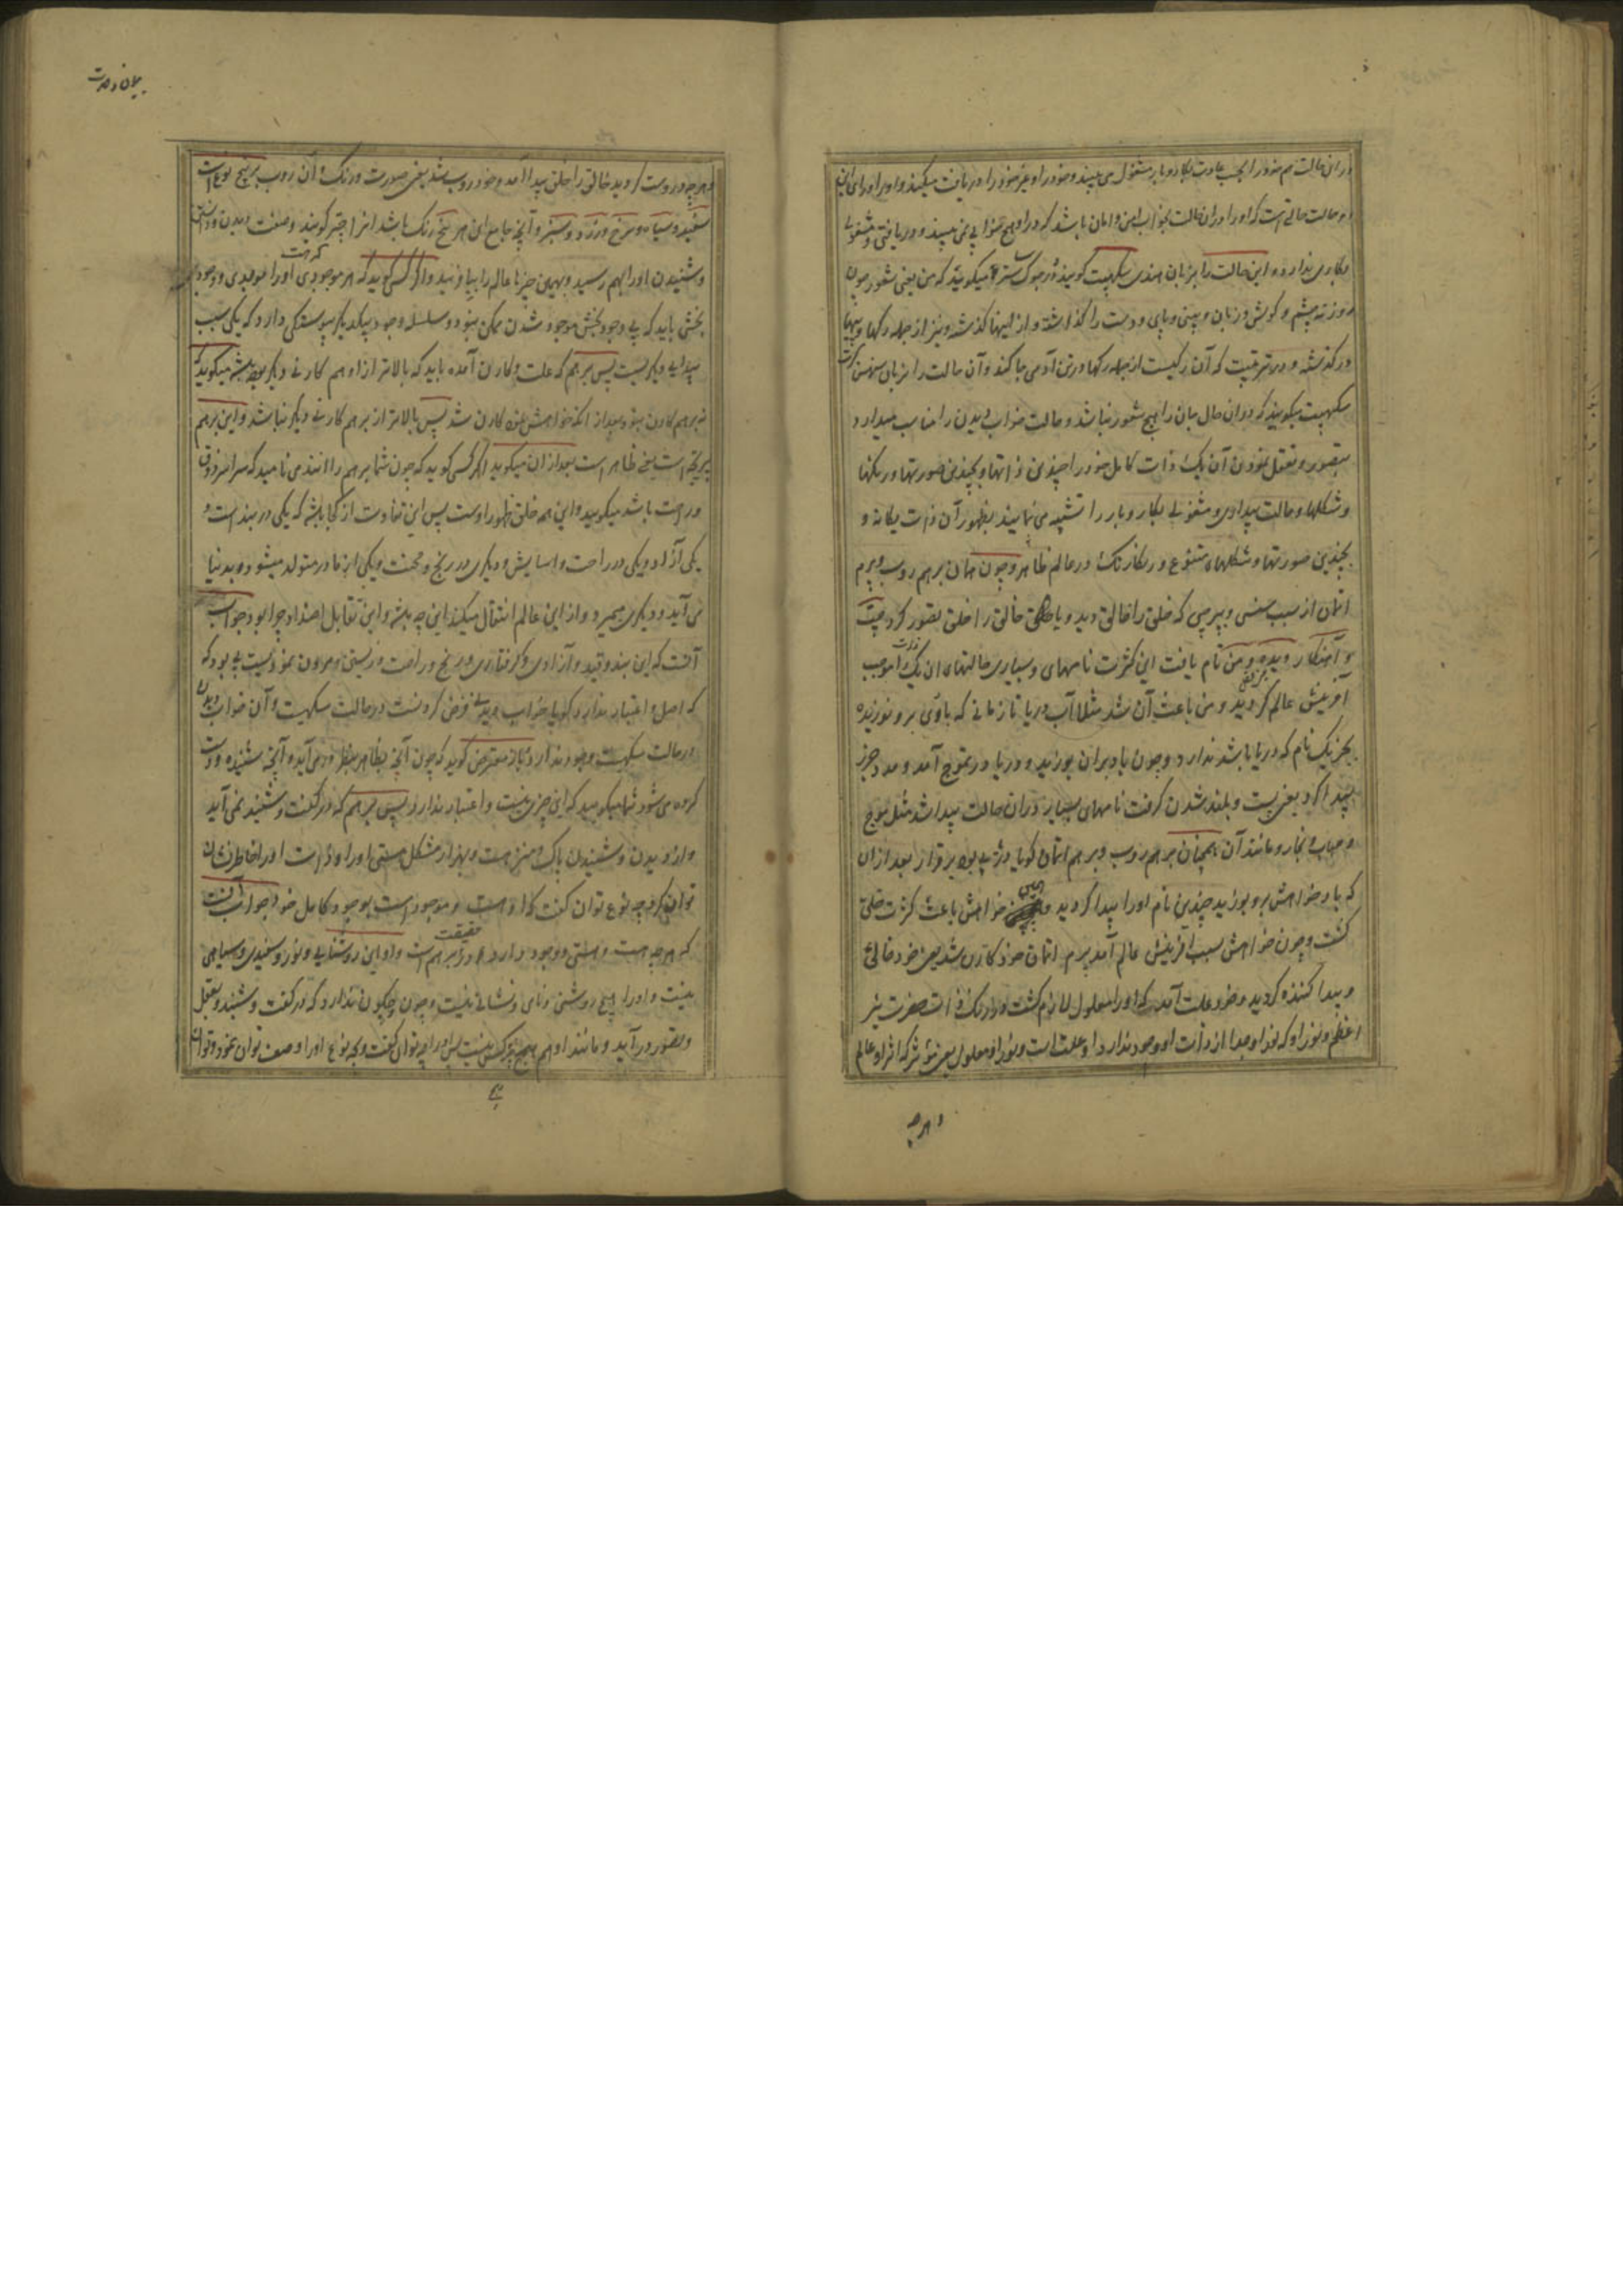 در ان حالت هم خود را بحسب عادت بکار و بار مشغول می بیند و خود را و غیر خود را دریافت میکند و او را در ای این
دو حالت حالتی است که او را در ان حالت بخواب امن و امان باشد که در او هیچ خوابی نمی بیند و دریافتی و مشغولی
و کاری ندارد و این حالت را بزبان هندی سکهپت گویند و در جوک میگویند که من یعنی شعور چون
روزنه چشم و گوش و زبان و بینی و پای و دست را گذاشته و از اینها گذشته و نیز از جمله رگها و پیها
در گذشته و در که آن رگیست از جمله رگها در تن آدمی جا کند و آن حالت را بزبان سهنس کرت
سکهپت میگویند که در ان حال جان را هیچ شعور نباشد و حالت خواب دیدن را مناسب میدارد
بتصور و تعقل نمودن آن یک ذات کامل خود را چندین ذاتها و بچندین صورتها و رنگها
و شکلها و حالت بیداری و مشغولی بکار و بار را تشبیه می نمایند بظهور آن ذات یگانه و
بچندین صورتها و شکلهای متنوع و رنگارنگ در عالم ظاهر و چون همان برهم روپ و پرم
اتمان از سبب که خلق را خالق دید و یا خالق را خلق تصور کرد چت
و آهنکار و بده و من نام یافت این کثرت نامهای و بسیاری حالتهای ان یک ذات را موجب
آفرینش عالم گردید و من باعث آن شد مثلا آب دریا تا زمانی که بادی برو نوزیده
بجز یک نام که دریا باشد ندارد و چون باد بران بوزید و دریا در تموج آمد و مد و جزر
پیدا کرد یعنی پست و بلند شدن گرفت نامهای بسیار در ان حالت پیدا شد مثل موج
و حباب و بخار و مانند آن همچنان برهم روپ و پرم اتمان گویا دریای بود بر قرار بعد ازان
که باد خواهش برو بوزید چندین نام او را پیدا گردید و همین خواهش باعث کثرت خلق
گشت و چون خواهش سبب آفرینش عالم آمد پرم اتمان خود کارن شد یعنی خود خالق
و پیدا کننده گردید و خود علت آمد که او را معلول لازم گشت در رنگ ذات حضرت نیر
اعظم و نور او که نور او جدا از ذات او وجود ندارد او علت است و نور او معلول یعنی مؤثر که اثر او عالم
و هر چه
بیان وحدت
و هر چه دروست گردید خالق را خلق پیدا آمد و خود روپ شد یعنی صورت و رنگ و آن روپ بر پنج نوع است
سفید و سیاه و سرخ و زرد و سبز و آنچه جامع این هر پنج رنگ باشد انرا چتر گویند و صفت دیدن و دانستن
و شنیدن او را بهم رسید و بهمین چیزها عالم را بیافرید و اگر کسی گوید که هر موجودی که هست او را موجدی و وجود
بخش باید که بی وجود بخش موجود شدن ممکن نبود و سلسله وجود بیکدیگر پیوستگی دارد که یکی سبب
پیدایی دیگریست پس برهم که علت و کارن آمده باید که بالاتر از او هم کارنی دیگر بوده باشد میگوید که
برهم کارن نبود بعد از آنکه خواهش نمود کارن شد پس بالاتر از برهم کارنی دیگر نباشد و این برهم
پرتچه است یعنی ظاهر است بعد ازان میگوید اگر کسی گوید که چون شما برهم را انند می نامید که سراسر ذوق
و راحت باشد میگویید و این همه خلق ظهور اوست پس این تفاوت از کجا باشد که یکی در بند است و
یکی آزاد و یکی در راحت و اسایش و دیگری در رنج و محنت و یکی از مادر متولد میشود و بدنیا
می آید و دیگری میمیرد و از این عالم انتقال میکند این چه باشد و این تقابل اضداد چرا بود جواب
آنست که این بند و قید و آزادی و گرفتاری و رنج و راحت و زیستن و مردن نمودیست بی بود که
که اصل و اعتبار ندارد گویا خواب دیدنی فرض کرد نست در حالت سکهپت و آن خواب دیدن
در حالت سکهپت وجود ندارد و باز معترض گوید که چون آنچه بظاهر بنظر در می آید و آنچه شنیده و دریافت
کرده می شود شما میگویید که این چیزی نیست و اعتبار ندارد پس برهم که در گفت و شنید نمی آید
و از دیدن و شنیدن پاک و منزه است و بهزار مشکل هستی او را و او است او را خاطر نشان
توان کرد بچه نوع توان گفت که او هست و موجود است بوجود کامل خود جواب آنست
که هر چه هست و هستی و وجود دارد در حقیقت برهم است و او این روشنایی و نور و سفیدی و سیاهی
نیست و او را هیچ روشنی و نامی و نشانی نیست و چون و چگون ندارد که در گفت و شنید و تعقل
و تصور در آید و مانند او هم هیچ چیزی نیست پس او را چه توان گفت و بچه نوع او را وصف توان نمود و توان